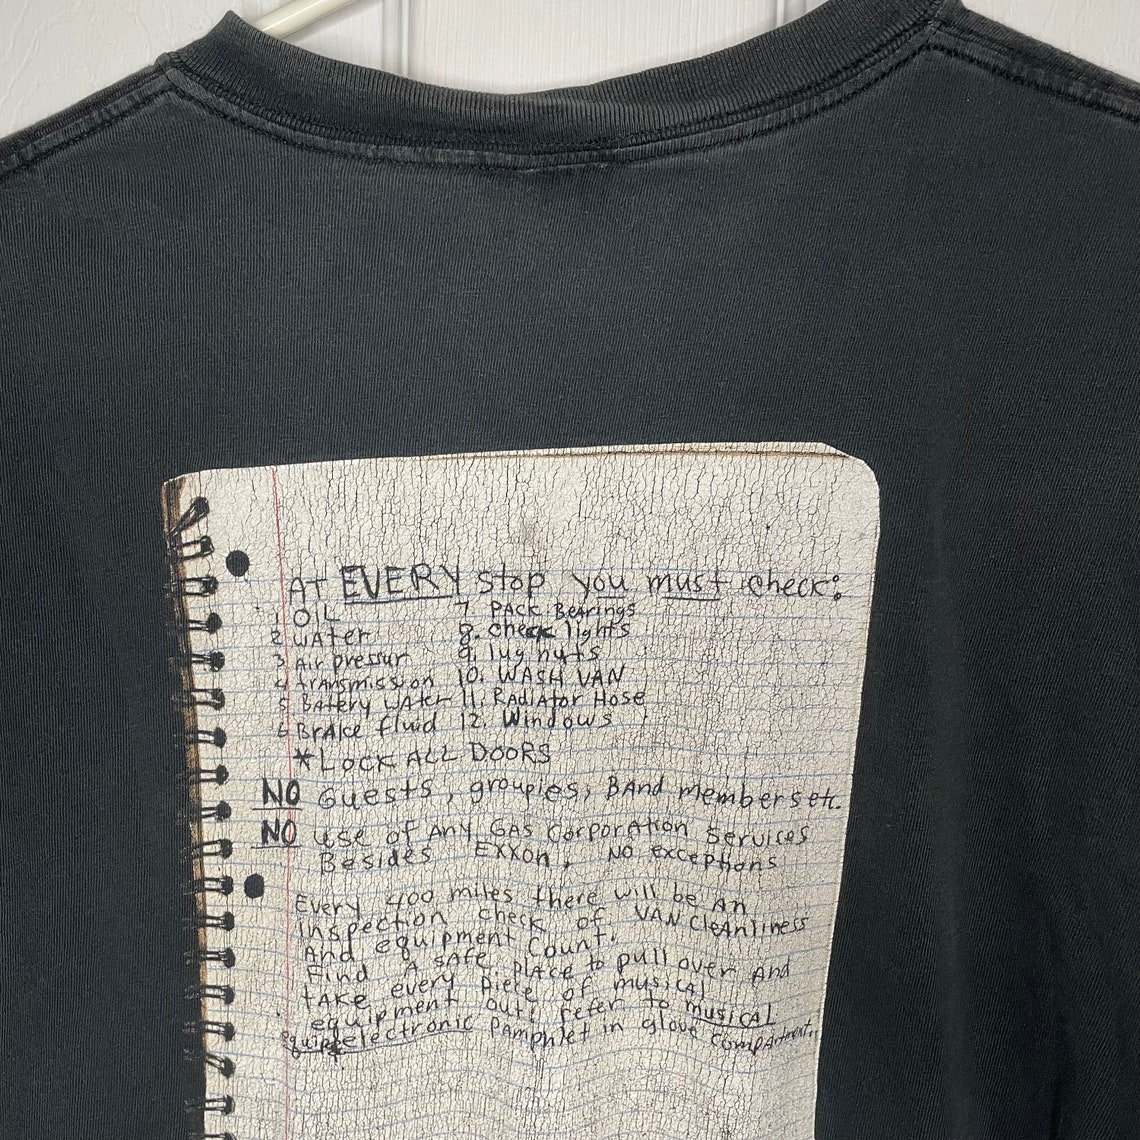 AT EVERY stop you must check:
1 OIL 7. PACK Bearings
2 WATer 8. check lights
3 Air pressur 9. lug nuts
4 trANSmission 10. WASH VAN
5 BAtery WAter 11. RADiAtor Hose
6 BrAke fluid 12. Windows
*Lock ALL DOORS
NO Guests, groupies, BAnd members etc.
NO use of Any GAS CorporAtion Services
Besides EXXON, NO exceptions
Every 400 miles there will be An
inspection check of VAN CleAnliness
And equipment Count.
Find A sAfe plAce to pull over And
tAke every piece of musicAl
equipment out, refer to musicAl
electronic PAmphlet in glove CompArtment.